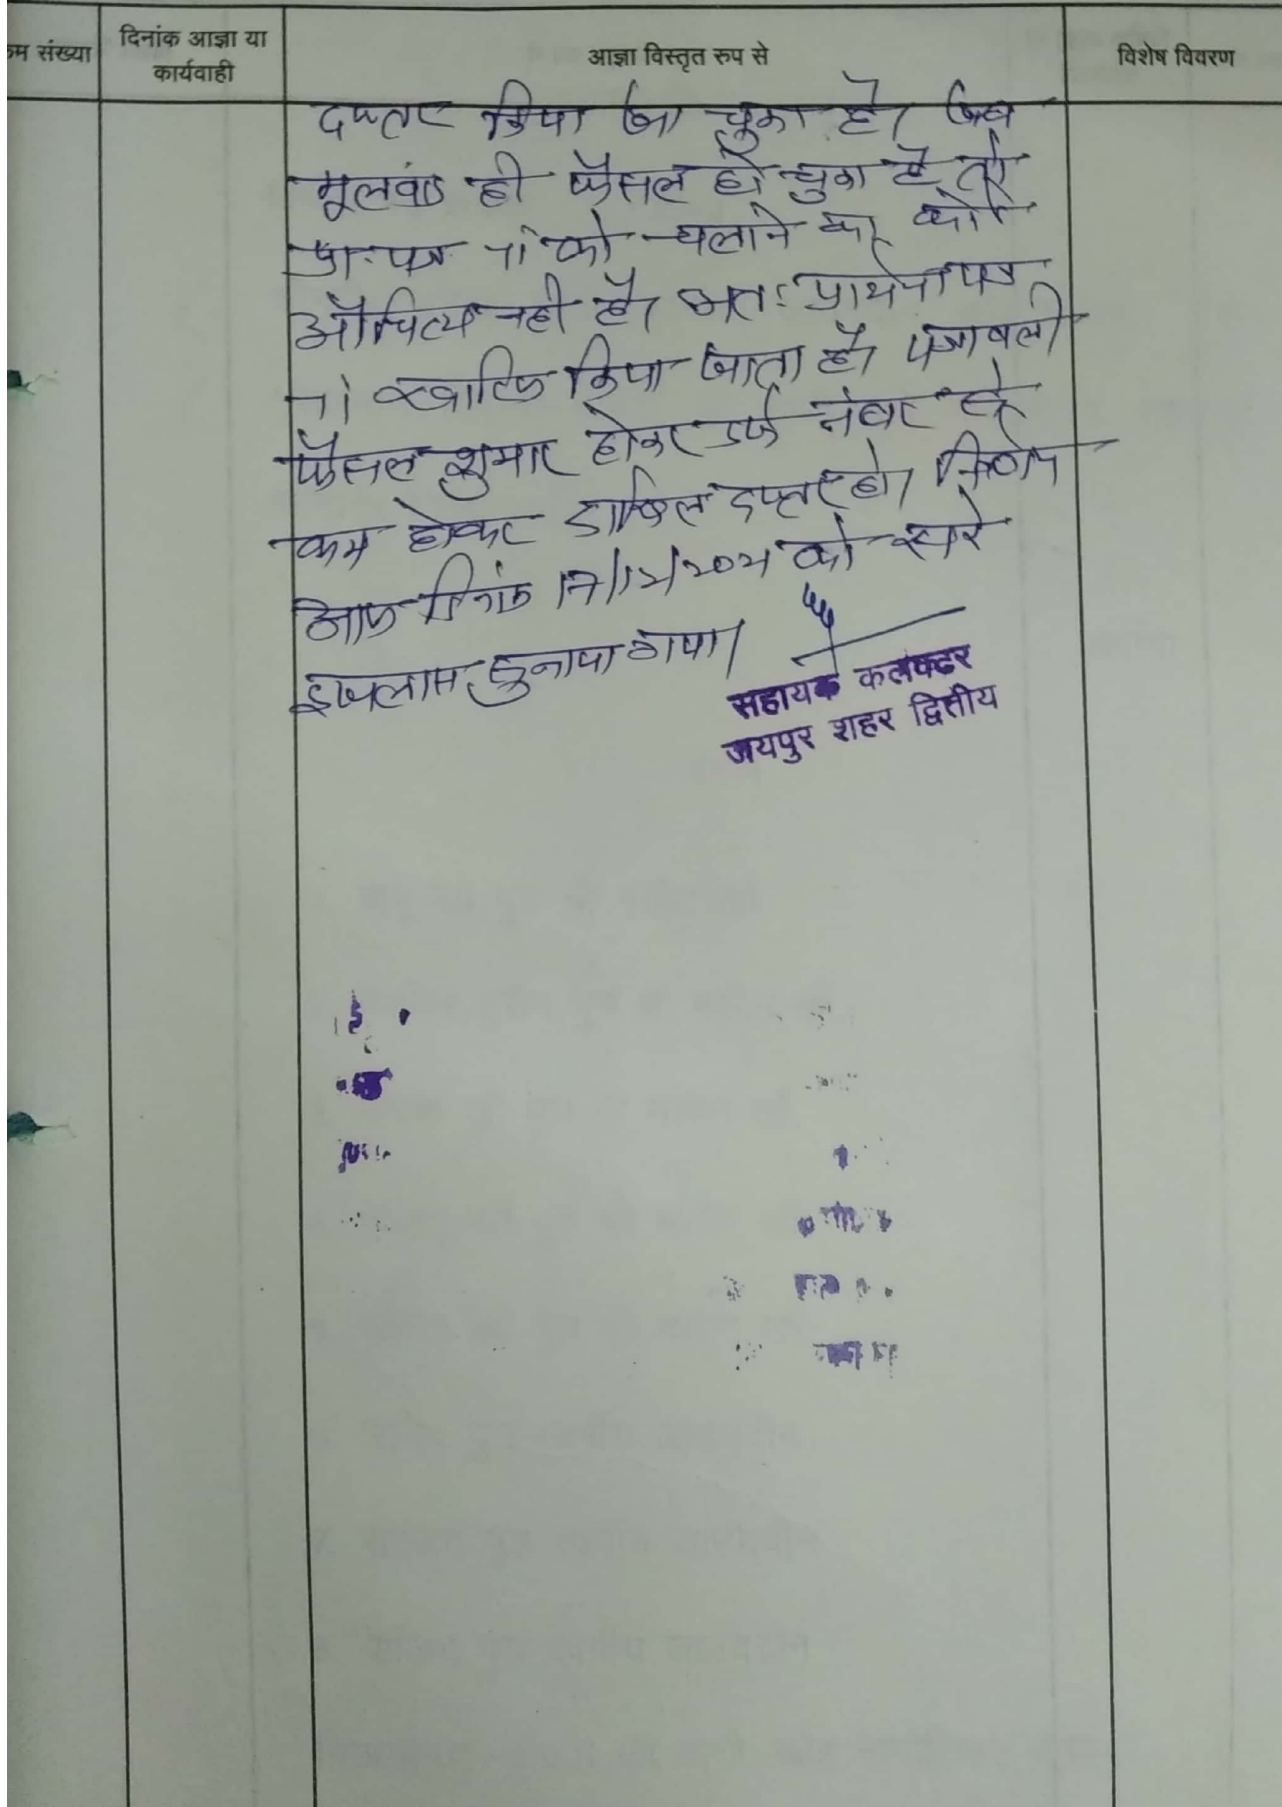 क्रम संख्या
दिनांक आज्ञा या
कार्यवाही
आज्ञा विस्तृत रुप से
विशेष विवरण
दफ्तर किया जा चुका है। जब
मूलवाद ही फैसल हो चुका है तो
प्रा.पत्र को चलाने का कोई
औचित्य नही है। अतः प्रार्थना पत्र
खारिज किया जाता है। पत्रावली
फैसल शुमार होकर दर्ज नंबर से
कम होकर दाखिल दफ्तर हो। निर्णय
आज दिनांक को सरे
इजलास सुनाया गया।
सहायक कलक्टर
जयपुर शहर द्वितीय